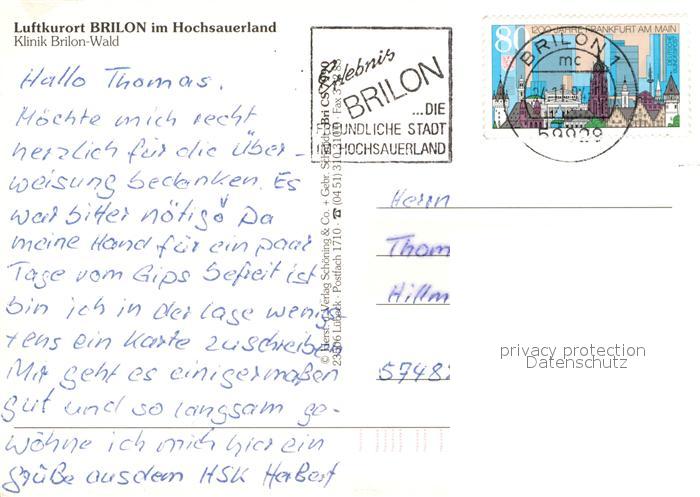 Luftkurort BRILON im Hochsauerland
Klinik Brilon-Wald
Hallo Thomas.
Möchte mich recht
herzlich für die Über-
weisung bedanken. Es
war bitter nötig! Da
meine Hand für ein paar
Tage vom Gips befreit ist
bin ich in der Lage wenigs
tens ein Karte zuschreiben
Mir geht es einigermaßen
gut und so langsam ge-
wöhne ich mich hier ein
Grüße aus dem HSK Herbert
Erlebnis
BRILON
...DIE
FREUNDLICHE STADT
IM HOCHSAUERLAND
80
1200 JAHRE FRANKFURT AM MAIN
BRILON 1
mc
59929
Schöning & Co. + Gebr. Schmidt
Lübeck · Postfach 1710 · ☎ (04 51)
Herrn
Thom
Hillm
5748
privacy protection
Datenschutz